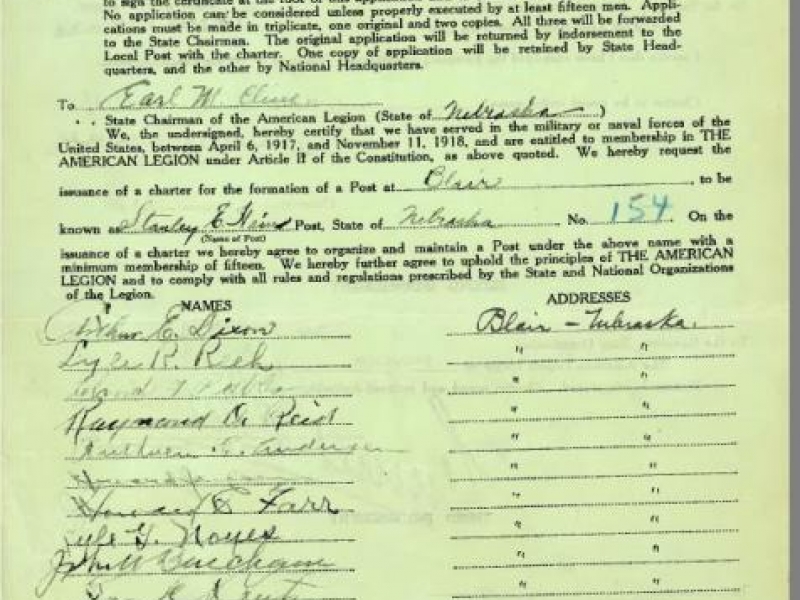 to sign the certificate at the foot of this
No application can be considered unless properly executed by at least fifteen men. Appli-
cations must be made in triplicate, one original and two copies. All three will be forwarded
to the State Chairman. The original application will be returned by indorsement to the
Local Post with the charter. One copy of application will be retained by State Head-
quarters, and the other by National Headquarters.
To Earl M Cline
State Chairman of the American Legion (State of Nebraska)
We, the undersigned, hereby certify that we have served in the military or naval forces of the
United States, between April 6, 1917, and November 11, 1918, and are entitled to membership in THE
AMERICAN LEGION under Article II of the Constitution, as above quoted. We hereby request the
issuance of a charter for the formation of a Post at Blair, to be
known as Stanley E. Post, State of Nebraska No. 154. On the
(Name of Post)
issuance of a charter we hereby agree to organize and maintain a Post under the above name with a
minimum membership of fifteen. We hereby further agree to uphold the principles of THE AMERICAN
LEGION and to comply with all rules and regulations prescribed by the State and National Organizations
of the Legion.
NAMES ADDRESSES
Arthur E. Dixon Blair - Nebraska.
R. " "
" "
Raymond Reid " "
" "
" "
Howard Farr " "
Noyes " "
John " "
" "